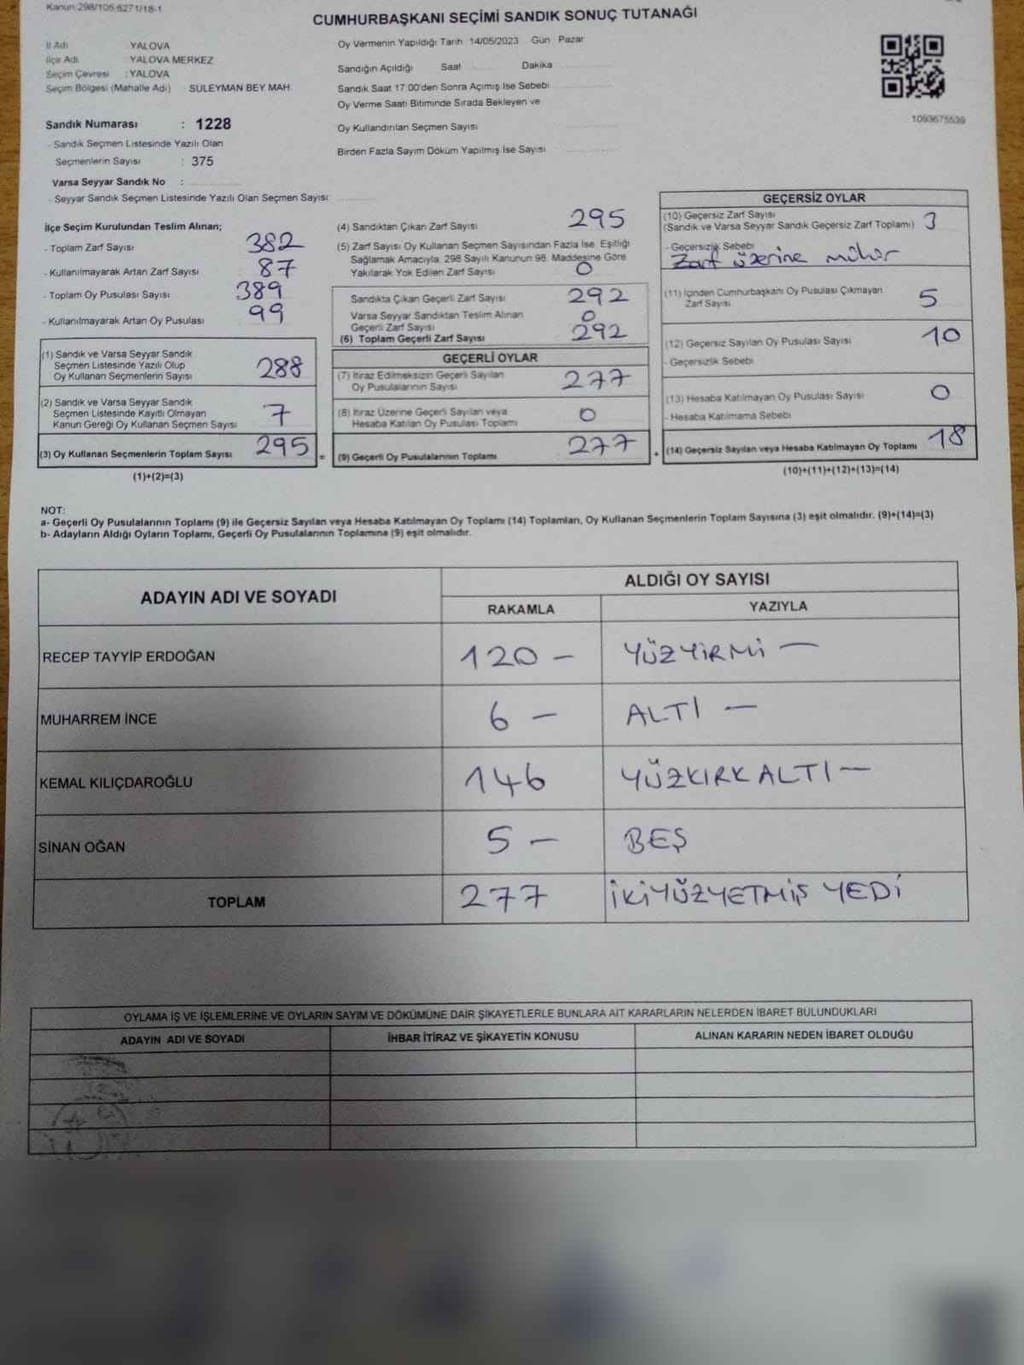 Kanun 298/105-6271/18-1
CUMHURBAŞKANI SEÇİMİ SANDIK SONUÇ TUTANAĞI
İl Adı YALOVA
İlçe Adı YALOVA MERKEZ
Seçim Çevresi : YALOVA
Seçim Bölgesi (Mahalle Adı) SÜLEYMAN BEY MAH.
Sandık Numarası : 1228
- Sandık Seçmen Listesinde Yazılı Olan
Seçmenlerin Sayısı : 375
Varsa Seyyar Sandık No :
- Seyyar Sandık Seçmen Listesinde Yazılı Olan Seçmen Sayısı
Oy Vermenin Yapıldığı Tarih 14/05/2023 Gün Pazar
Sandığın Açıldığı Saat Dakika
Sandık Saat 17:00'den Sonra Açımış İse Sebebi
Oy Verme Saati Bitiminde Sırada Bekleyen ve
Oy Kullandırılan Seçmen Sayısı
Birden Fazla Sayım Döküm Yapılmış İse Sayısı
1093675539
İlçe Seçim Kurulundan Teslim Alınan;
- Toplam Zarf Sayısı 382
- Kullanılmayarak Artan Zarf Sayısı 87
- Toplam Oy Pusulası Sayısı 389
- Kullanılmayarak Artan Oy Pusulası 99
(1) Sandık ve Varsa Seyyar Sandık
Seçmen Listesinde Yazılı Olup
Oy Kullanan Seçmenlerin Sayısı 288
(2) Sandık ve Varsa Seyyar Sandık
Seçmen Listesinde Kayıtlı Olmayan
Kanun Gereği Oy Kullanan Seçmen Sayısı 7
(3) Oy Kullanan Seçmenlerin Toplam Sayısı 295 =
(1)+(2)=(3)
(4) Sandıktan Çıkan Zarf Sayısı 295
(5) Zarf Sayısı Oy Kullanan Seçmen Sayısından Fazla İse, Eşitliği
Sağlamak Amacıyla, 298 Sayılı Kanunun 98. Maddesine Göre
Yakılarak Yok Edilen Zarf Sayısı 0
Sandıkta Çıkan Geçerli Zarf Sayısı 292
Varsa Seyyar Sandıktan Teslim Alınan
Geçerli Zarf Sayısı 0
(6) Toplam Geçerli Zarf Sayısı 292
GEÇERLİ OYLAR
(7) İtiraz Edilmeksizin Geçerli Sayılan
Oy Pusulalarının Sayısı 277
(8) İtiraz Üzerine Geçerli Sayılan veya
Hesaba Katılan Oy Pusulası Toplamı 0
(9) Geçerli Oy Pusulalarının Toplamı 277 +
GEÇERSİZ OYLAR
(10) Geçersiz Zarf Sayısı
(Sandık ve Varsa Seyyar Sandık Geçersiz Zarf Toplamı) 3
- Geçersizlik Sebebi
Zarf üzerine mühür
(11) İçinden Cumhurbaşkanı Oy Pusulası Çıkmayan
Zarf Sayısı 5
(12) Geçersiz Sayılan Oy Pusulası Sayısı 10
- Geçersizlik Sebebi
(13) Hesaba Katılmayan Oy Pusulası Sayısı 0
- Hesaba Katılmama Sebebi
(14) Geçersiz Sayılan veya Hesaba Katılmayan Oy Toplamı 18
(10)+(11)+(12)+(13)=(14)
NOT:
a- Geçerli Oy Pusulalarının Toplamı (9) ile Geçersiz Sayılan veya Hesaba Katılmayan Oy Toplamı (14) Toplamları, Oy Kullanan Seçmenlerin Toplam Sayısına (3) eşit olmalıdır. (9)+(14)=(3)
b- Adayların Aldığı Oyların Toplamı, Geçerli Oy Pusulalarının Toplamına (9) eşit olmalıdır.
ADAYIN ADI VE SOYADI
ALDIĞI OY SAYISI
RAKAMLA YAZIYLA
RECEP TAYYİP ERDOĞAN 120 – YÜZYİRMİ –
MUHARREM İNCE 6 – ALTI –
KEMAL KILIÇDAROĞLU 146 YÜZKIRKALTI –
SİNAN OĞAN 5 – BEŞ
TOPLAM 277 İKİYÜZYETMİŞ YEDİ
OYLAMA İŞ VE İŞLEMLERİNE VE OYLARIN SAYIM VE DÖKÜMÜNE DAİR ŞİKAYETLERLE BUNLARA AİT KARARLARIN NELERDEN İBARET BULUNDUKLARI
ADAYIN ADI VE SOYADI İHBAR İTİRAZ VE ŞİKAYETİN KONUSU ALINAN KARARIN NEDEN İBARET OLDUĞU